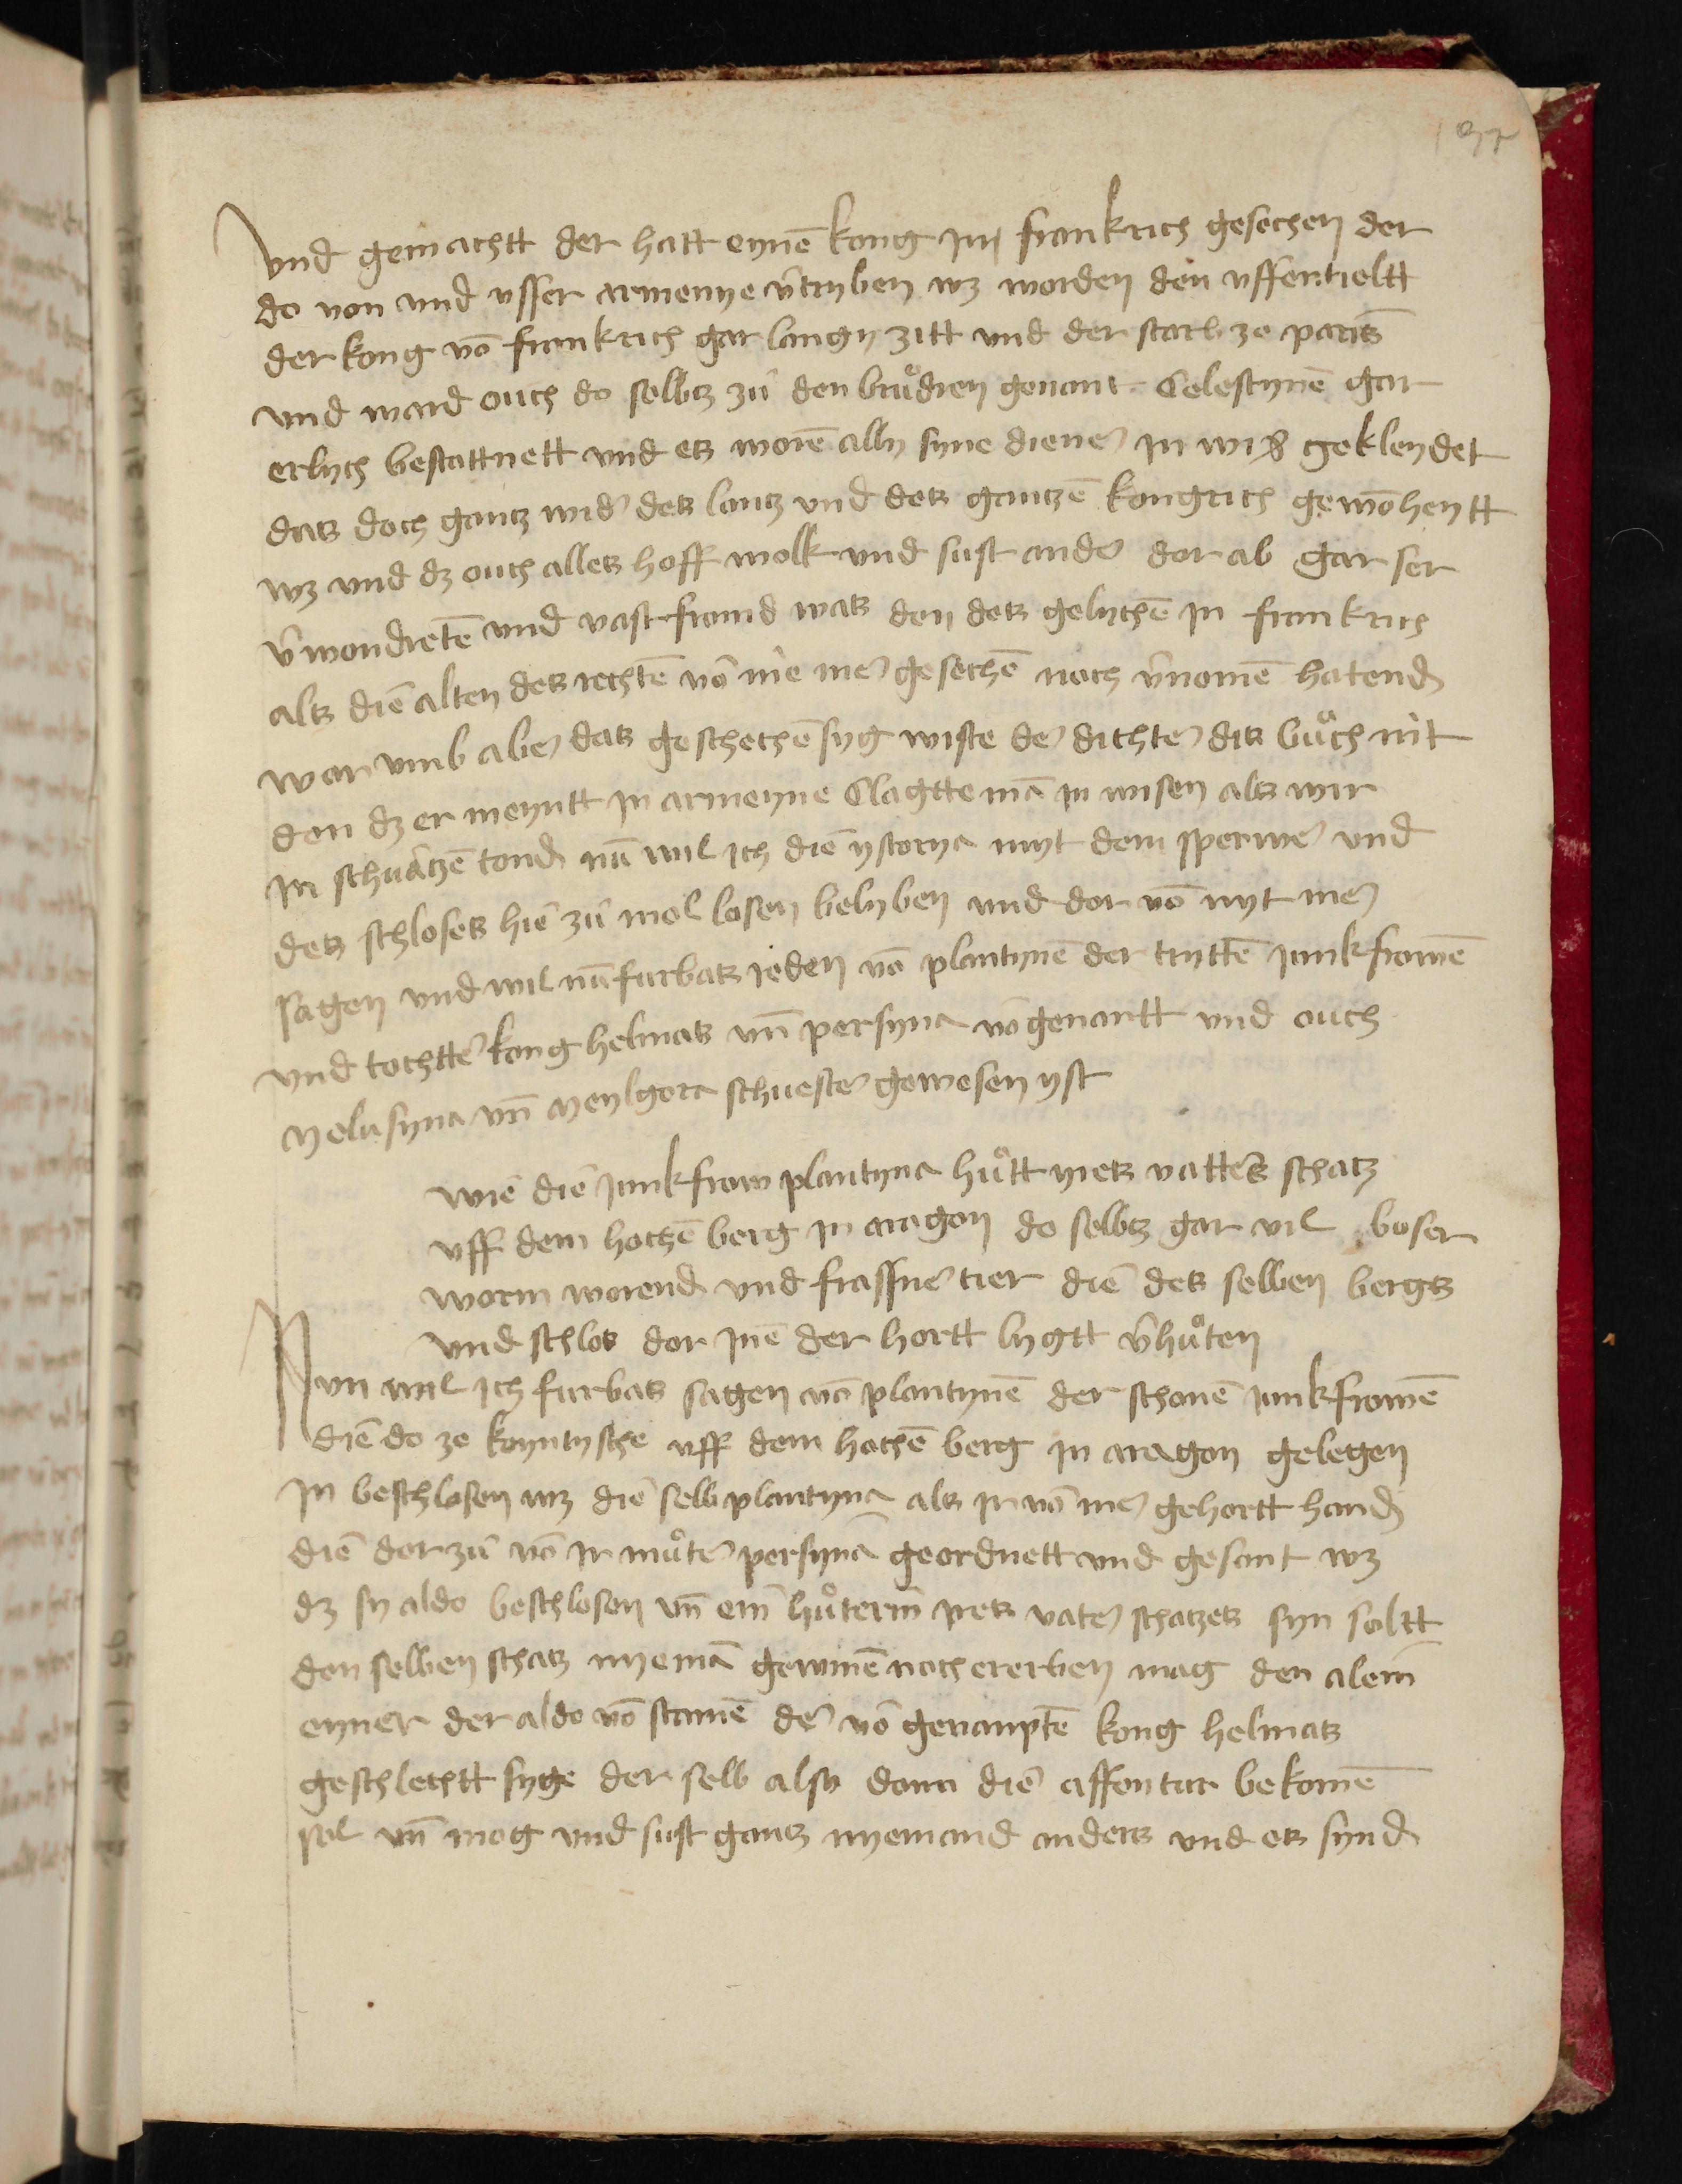 vnd gemachtt der hatt eynē kong jn frankrich gesechen der
do von vnd vsser armenye v̄tryben wz worden den vffentieltt
der kong vō frankrich gar langy zitt vnd der starb ze paris
vnd ward ouch do selbtz zů den bru̓dren genant Celestynē gar
erlych bestattnett vnd es worē ally syne diener jn wis gekleydet
das doch gantz wider des lantz vnd des gantzē kongrich gewōheytt
wz vnd dz ouch alles hoff wolk vnd sust ander dor ab gar ser
v̄wondretē vnd vast fromd was den des gelychē jn frankrich
als diē alten des rechtē vō nie mer gesechē noch v̄nomē hatend
war vmb aber das geschechē syg wiste der dichter dis bůch nit
den dz er meyntt jn armenye Clagtte mā jn wisen als wir
jn schwatzē tond nū wil ich diē ystorya myt dem sperwer vnd
des schloses hiē zů mol losen belyben vnd dor vō nyt mer
sagen vnd wil nū furbas reden vō plantynē der tryttē junkfrowē
vnd tochtter kong helmas vn̄ persyna vōgenantt vnd ouch
Melusyna vn̄ Meylgora schwester gewesen yst
wiē diē junkfrow plantyna hůtt yres vatters schatz
vff dem hochē berg jn aragon do selbtz gar vil boser
worm worend vnd frassner tier diē des selben bergs
vnd schlos dor jnē der hortt lygtt v̄hůten
Nun wil ich furbas sagen vō plantynē der schonē junkfrowē
diē do ze koyntysche vff dem hochē berg jn aragon gelegen
jn beschlosen wz diē selb plantyna als ir vō mer gehortt hand
diē dor zů vō ir můter persyna geordnett vnd gesant wz
dz sy aldo beschlosen vn̄ ein hůterin yres vater schatzes syn soltt
den selben schatz nyemā gewinē noch ererben mag den alein
eyner der aldo vō stamē der vō genanptē kong helmas
geschlechtt syge der selb also dann diē affentur bekomē
sol vn̄ mog vnd sust gantz nyemand anders vnd es synd